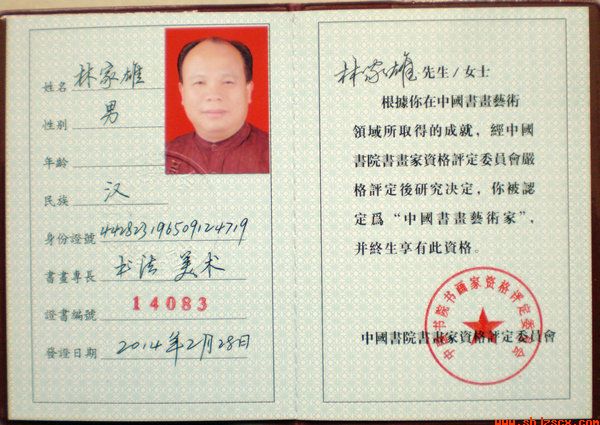 姓名 林家雄
性别 男
年齡
民族 汉
身份證號 442823196509124719
書畫專長 书法 美术
證書編號 14083
發證日期 2014年2月28日
林家雄 先生/女士
根據你在中國書畫藝術
領域所取得的成就，經中國
書院書畫家資格評定委員會嚴
格評定後研究决定，你被認
定爲“中國書畫藝術家”，
并終生享有此資格。
中國書院書畫家資格評定委員會
中国书院书画家资格评定委员会